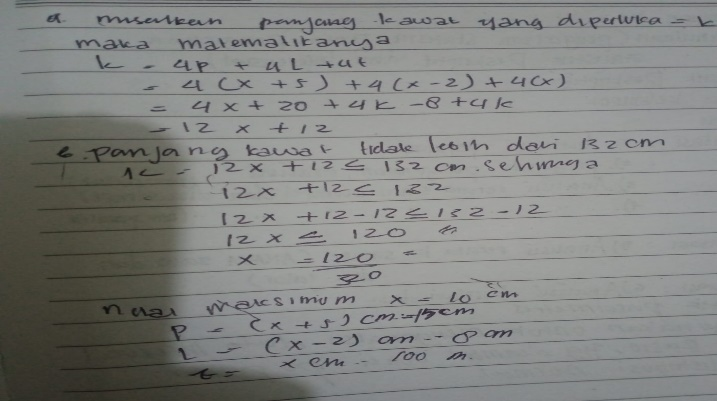 a. misalkan panjang kawat yang diperluka = k
maka matematikanya
k = 4p + 4L + 4t
= 4 (x + 5) + 4 (x - 2) + 4(x)
= 4x + 20 + 4x - 8 + 4x
= 12 x + 12
b. panjang kawat tidak lebih dari 132 cm
k = 12x + 12 ≤ 132 cm. sehingga
12x + 12 ≤ 132
12x + 12 - 12 ≤ 132 - 12
12 x ≤ 120
x = 120
nilai maksimum x = 10 cm
P = (x + 5) cm = 15 cm
L = (x - 2) cm = 8 cm
t = x cm = 100 m.